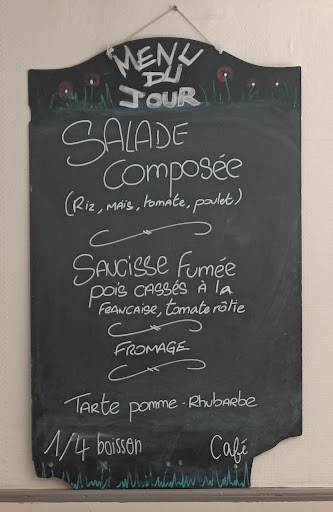 MENU
DU
JOUR
SALADE
COMPOSÉE
(Riz, maïs, tomate, poulet)
SAUCISSE FUMÉE
POIS CASSÉS À LA
FRANCAISE, tomate Rôtie
FROMAGE
TARTE POMME - Rhubarbe
1/4 boisson Café